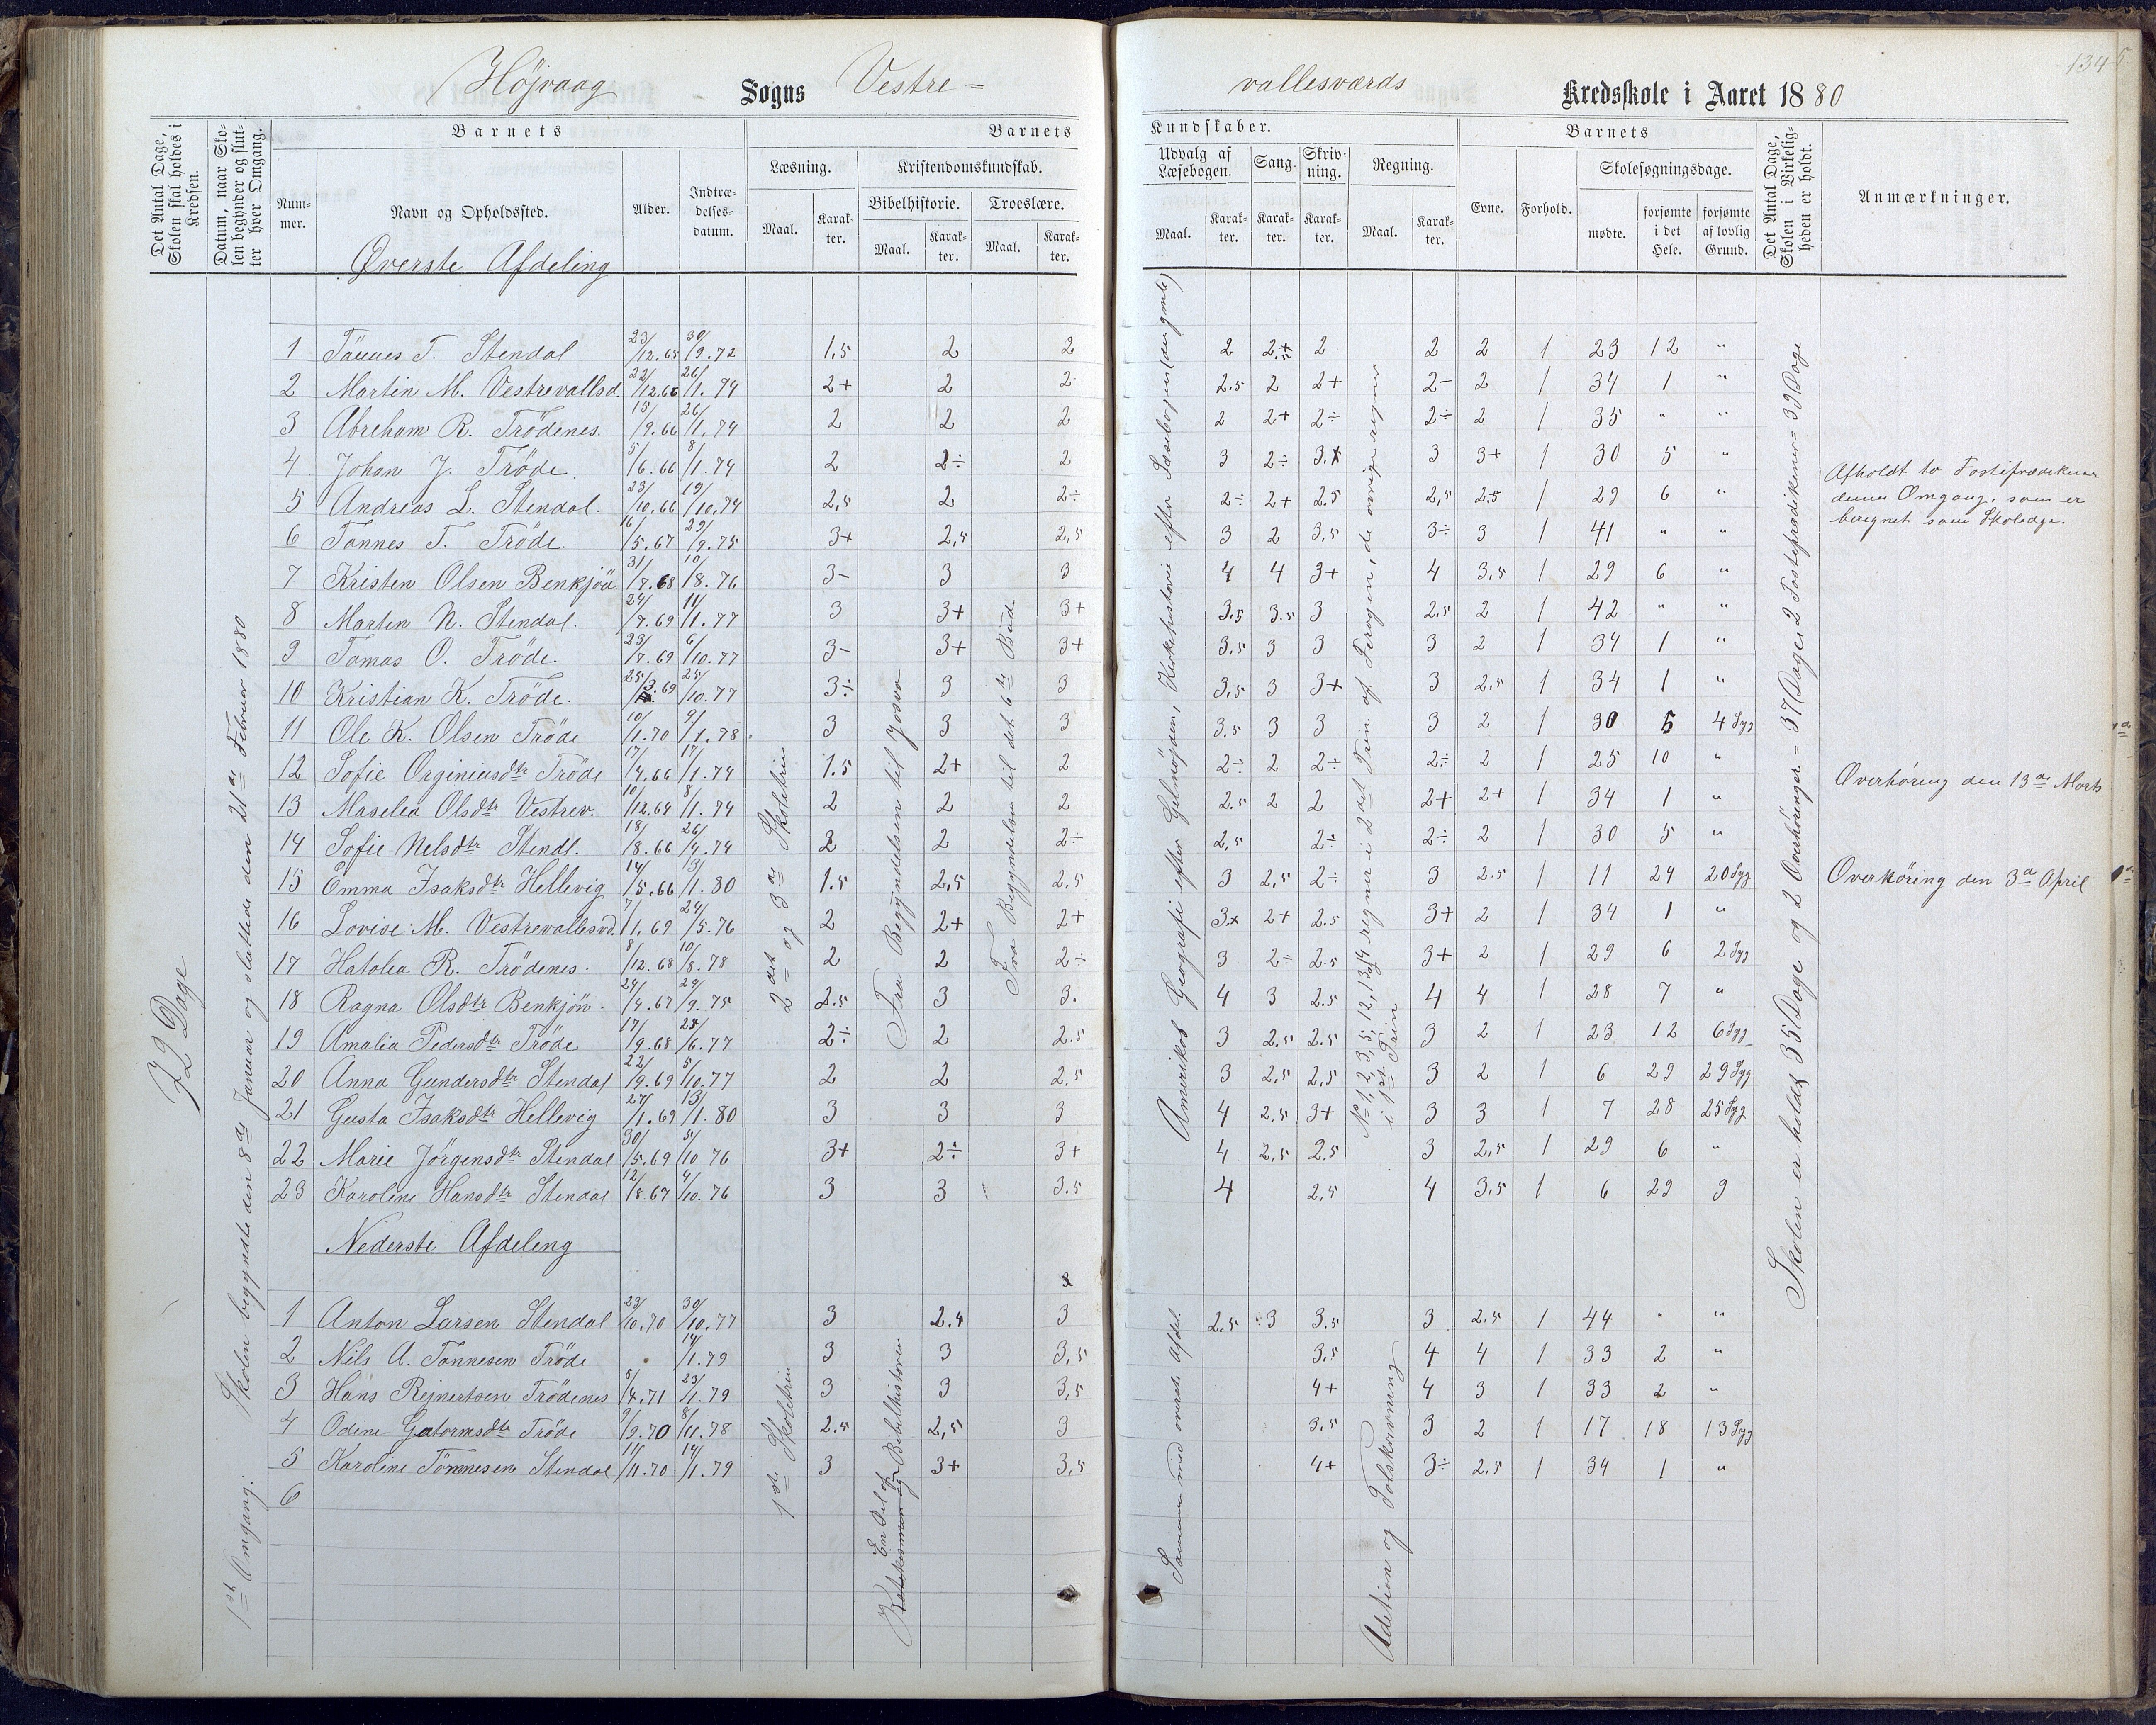 Höjvaag Sogns Vestre-
vallesværds Kredsskole i Aaret 1880
134
Det Antal Dage, Skolen skal holdes i Kredsen.
Datum, naar Skolen begynder og slutter hver Omgang.
Barnets
Nummer.
Navn og Opholdssted.
Alder.
Indtrædelsesdatum.
Barnets
Læsning.
Maal.
Karakter.
Kristendomskundskab.
Bibelhistorie.
Maal.
Karakter.
Troeslære.
Maal.
Karakter.
Kundskaber.
Udvalg af Læsebogen.
Maal.
Karakter.
Sang.
Karakter.
Skrivning.
Karakter.
Regning.
Maal.
Karakter.
Barnets
Evne.
Forhold.
Skolesøgningsdage.
mødte.
forsømte i det Hele.
forsømte af lovlig Grund.
Det Antal Dage, Skolen i Virkeligheden er holdt.
Anmærkninger.
72 Dage
1st Omgang: Skolen begyndte den 8de Januar og sluttede den 21de Februar 1880
Øverste Afdeling
2det og 3de Skoletrin
Fra Begyndelsen til Josva
Fra Begyndelsen til det 6te Bud
Amerikas Geografi efter Geelmuyden, Kirkehistorie efter Læsebogen (den gamle)
No 1, 2, 3, 5, 12, 13, 14 regner i 2det Trin af Ferogen, de øvrige regner i 1st Trin
Skolen er holdt 35 Dage og 2 Overhöringer = 37 Dage, 2 Fasteprædikener = 39 Dage
1 Tönnes T. Stendal 23/12.65 30/9.72 1.5 2 2 2 2.5+ 2 2 2 1 23 12 "
2 Martin M. Vestrevallsd. 22/12.66 26/1.74 2+ 2 2 2.5 2 2+ 2- 2 1 34 1 "
3 Abreham R. Trödenes. 15/9.66 26/1.74 2 2 2 2 2+ 2÷ 2÷ 2 1 35 " "
4 Johan J. Tröde. 5/6.66 8/1.74 2 2÷ 2 3 2÷ 3.+ 3 3+ 1 30 5 "
5 Andreas L. Stendal. 23/10.66 19/10.74 2,5 2 2÷ 2÷ 2+ 2.5 2,5 2.5 1 29 6 "
6 Tönnes T. Tröde. 16/5.67 29/9.75 3+ 2,5 2,5 3 2 3,5 3÷ 3 1 41 " "
7 Kristen Olsen Benkjön 31/7.68 10/8.76 3- 3 3 4 4 3+ 4 3,5 1 29 6 "
8 Martin N. Stendal. 24/7.69 11/1.77 3 3+ 3+ 3.5 3.5 3 2.5 2 1 42 " "
9 Tomas O. Tröde. 23/7.69 6/10.77 3- 3+ 3+ 3,5 3 3 3 2 1 34 1 "
10 Kristian K. Tröde. 25/3.69 25/10.77 3÷ 3 3 3,5 3 3+ 3 2,5 1 34 1 "
11 Ole K. Olsen Tröde 10/1.70 9/1.78 3 3 3 3.5 3 3 3 2 1 30 5 4 Syg
12 Sofie Orginiusdtr Tröde 17/4.66 17/1.74 1.5 2+ 2 2÷ 2 2÷ 2÷ 2 1 25 10 "
13 Maselia Olsdtr Vestrev. 10/12.64 8/1.74 2 2 2 2.5 2 2 2+ 2+ 1 34 1 "
14 Sofie Nelsdtr Stendl. 18/8.66 26/4.74 2 2 2÷ 2,5 2÷ 2÷ 2 1 30 5 "
15 Emma Isaksdtr Hellevig 14/5.66 13/1.80 1.5 2,5 2,5 3 2,5 2÷ 3 2.5 1 11 24 20 Syg
16 Lovise M. Vestrevallesvd. 7/1.69 24/5.76 2 2+ 2+ 3+ 2+ 2.5 3+ 2 1 34 1 "
17 Hatolea R. Trödenes. 8/12.68 10/8.78 2 2 2÷ 3 2÷ 2.5 3+ 2 1 29 6 2 Syg
18 Ragna Olsdtr Benkjön. 24/4.67 29/9.75 2.5 3 3. 4 3 2.5 4 4 1 28 7 "
19 Amalia Pedersdtr Tröde 17/9.68 28/6.77 2÷ 2 2.5 3 2.5 2.5 3 2 1 23 12 6 Syg
20 Anna Gundersdtr Stendal 22/9.69 5/10.77 2 2 2,5 3 2,5 2,5 3 2 1 6 29 29 Syg
21 Gusta Isaksdtr Hellevig 27/1.69 13/1.80 3 3 3 4 2,5 3+ 3 3 1 7 28 25 Syg
22 Marie Jörgensdtr Stendal 30/5.69 5/10 76 3+ 2÷ 3+ 4 2,5 2.5 3 2,5 1 29 6 "
23 Karoline Hansdtr Stendal 12/8.67 4/10.76 3 3 3.5 4 2,5 4 3,5 1 6 29 9
Afholdt to Fasteprædikener
denne Omgang, som er
beregnet som Skoledge.
Overhöring den 13de Marts
Overhöring den 3de April
Nederste Afdeling
1de Skoletrin
En Del af Bibelhistorien
Samme med øverste Afdel.
Adition og Tolskrivning
1 Anton Larsen Stendal 23/10.70 30/10.77 3 2.5 3 2.5 3 3,5 3 2.5 1 44 " "
2 Nils A. Tönnesen Tröde 14/1.79 3 3 3,5 3.5 4 4 1 33 2 "
3 Hans Rejnertsen Trödenes 8/4.71 23/1.79 3 3 3,5 4+ 4 3 1 33 2 "
4 Odine Gutormsdtr Tröde 9/9.70 8/11.78 2.5 2,5 3 3.5 3 2 1 17 18 13 Syg
5 Karoline Tönnesen Stendal 11/11.70 14/1.79 3 3+ 3,5 4+ 3÷ 2.5 1 34 1 "
6